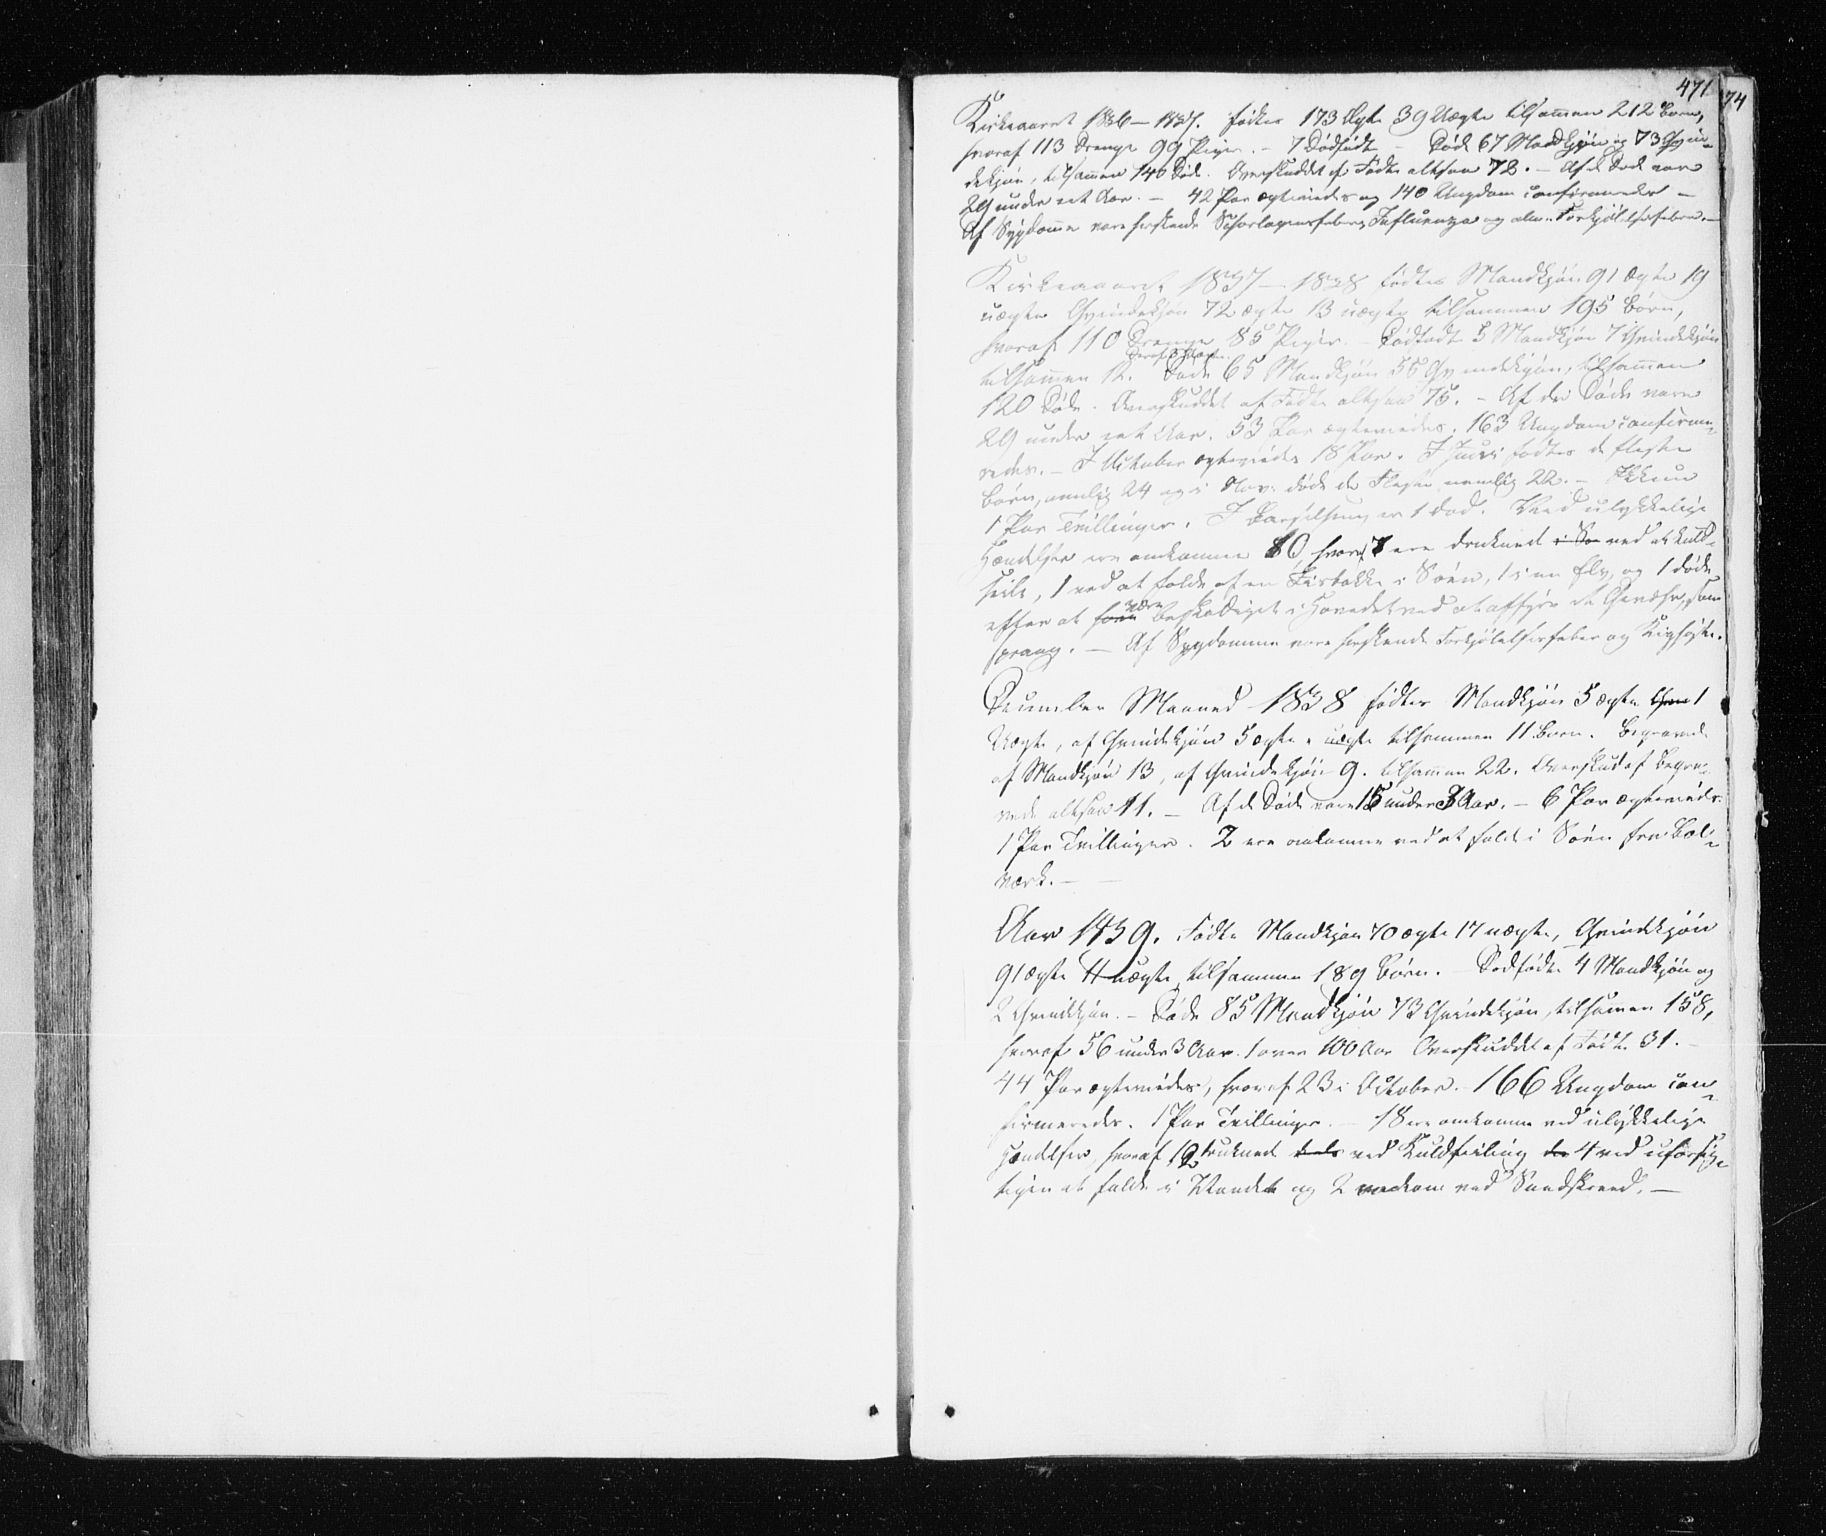 471
74
Kirkeaaret 1836–1837. fødtes 173 Ægte 39 Uægte tilsammen 212 Børn,
hvoraf 113 Drenge 99 Piger. – 7 Dødfødte – Døde 67 Mandkjøn og 73 Qvin-
dekjøn, tilsammen 140 Døde. Overskuddet af Fødte altsaa 72. – Af de Døde vare
29 under eet Aar. – 42 Par ægteviedes og 140 Ungdom confirmeredes –
Af Sygdomme vare herskende Influenza og alm. Forkjølelsesfeber. –
Kirkeaaret 1837–1838 fødtes Mandkjøn 91 ægte 19
uægte Qvindekjøn 72 ægte 13 uægte tilsammen 195 Børn,
hvoraf 110 Drenge 85 Piger. – Dødfødt 5 Mandkjøn 7 Qvindekjøn
tilsammen 12. Døde 65 Mandkjøn 55 Qvindekjøn, tilsammen
120 Døde. Overskuddet af Fødte altsaa 75. – Af de Døde vare
29 under eet Aar. 53 Par ægteviedes. 163 Ungdom confirme-
redes. – I October ægteviedes 18 Par. I Juni fødtes de fleste
Børn, nemlig 24 og i Nov. døde de Fleste nemlig 22. –
1 Par Tvillinger. I Barselseng er 1 død. Ved ulykkelige
Hændelser ere omkomne 10, hvoraf 7 ere druknede i Søe ved at kuld-
seile, 1 ved at falde af en Fisbakke i Søen, 1 i en Elv, og 1 døde
efter at være beskadiget i Hovedet ved at affyre et Gevæhr, som
sprang. – Af Sygdomme vare herskende Forkjølelsesfeber og Kighoste.
December Maaned 1838 fødtes Mandkjøn 5 ægte 1
Uægte, af Qvindekjøn 5 ægte uægte tilsammen 11 Børn. Begravede
af Mandkjøn 13, af Qvindekjøn 9. tilsammen 22. Overskud af Begra-
vede altsaa 11. – Af de Døde vare 15 under 3 Aar. – 6 Par ægteviedes
1 Par Tvillinger. 2 ere omkomne ved at falde i Søen fra Bol-
værk. –
Aar 1839. Fødte Mandkjøn 70 ægte 17 uægte, Qvindekjøn
91 ægte 11 uægte, tilsammen 189 Børn. – Dødfødte 4 Mandkjøn og
2 Qvindekjøn. – Døde 85 Mandkjøn 73 Qvindekjøn, tilsammen 158,
hvoraf 56 under 3 Aar. 1 over 100 Aar Overskuddet af Fødte 31. –
44 Par ægteviedes, hvoraf 23 i October. – 166 Ungdom con-
firmeredes. 1 Par Tvillinger. – 18 ere omkomne ved ulykkelige
Hændelser, hvoraf 12 druknede ved Kuldseiling 4 ved uforsig-
tigen at falde i Vandet og 2 ved Sneeskreed. –